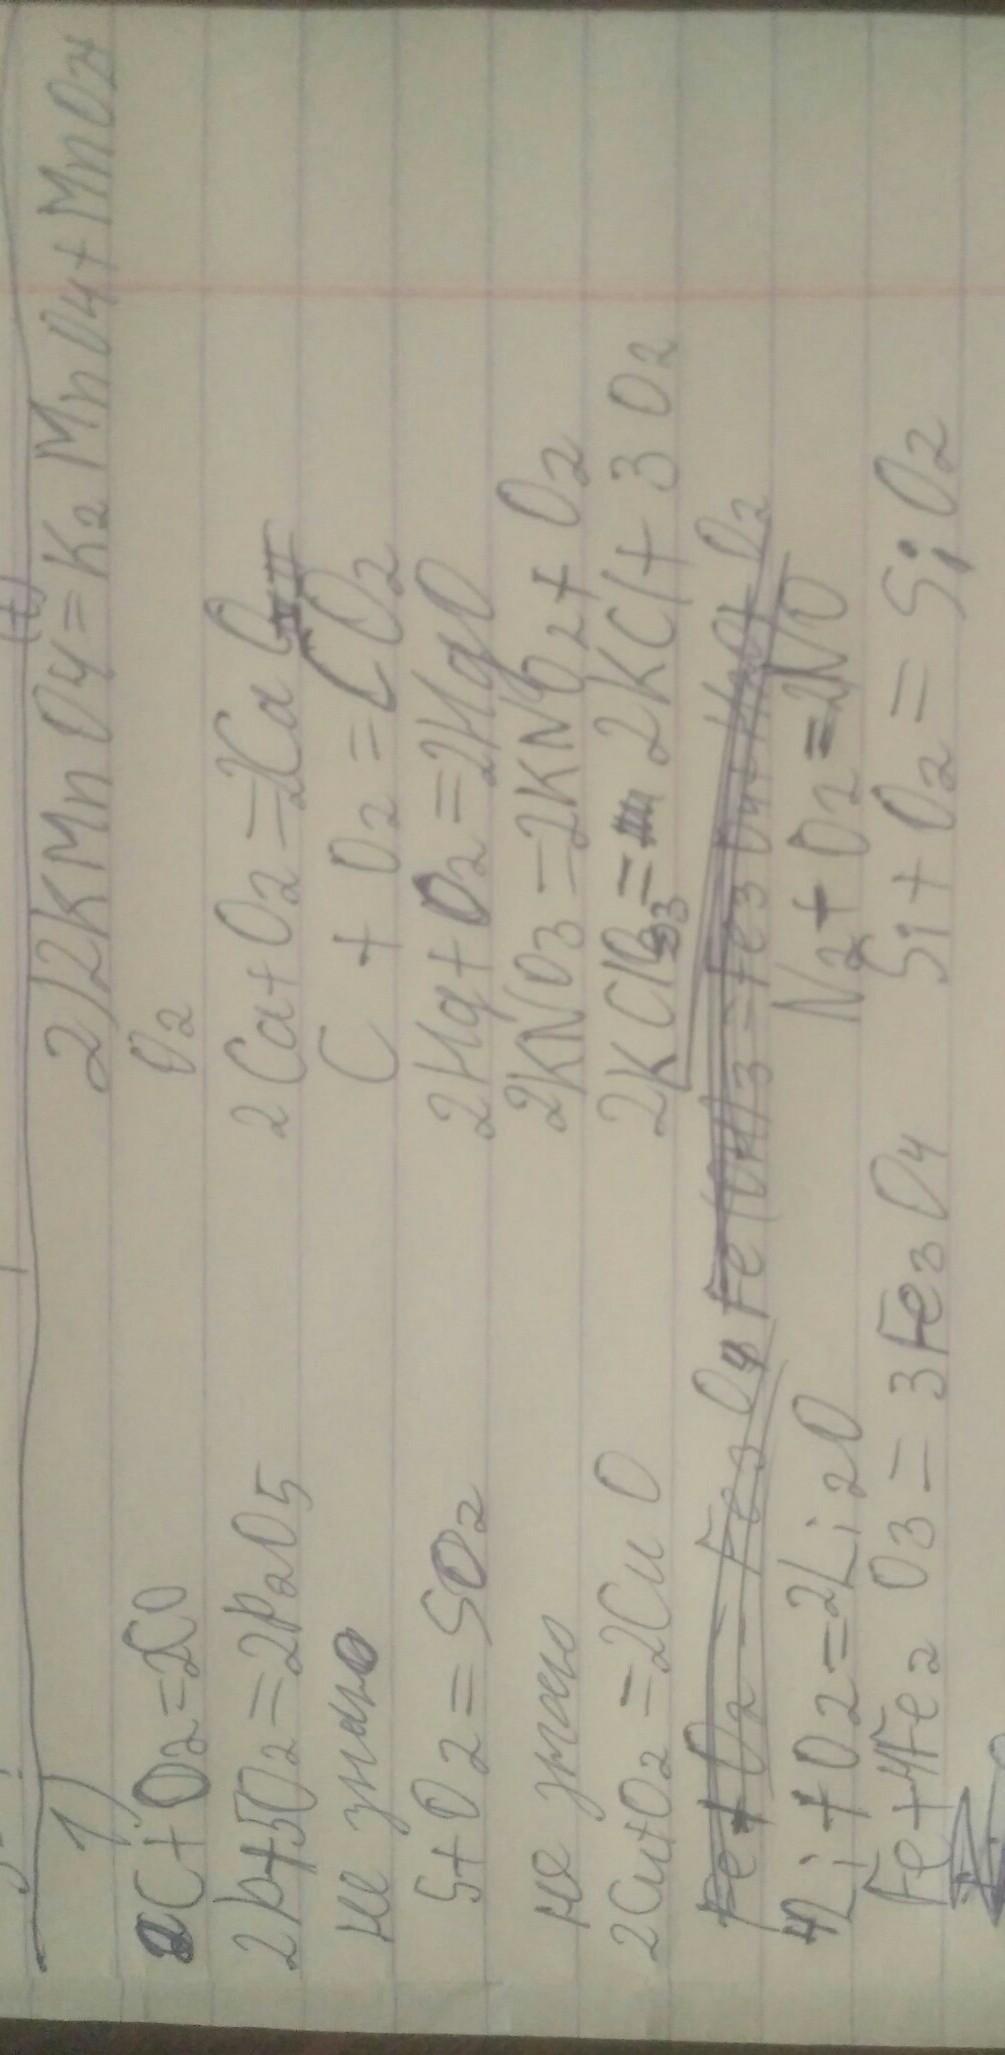 1)
2C+O2=2CO
2P+5O2=2P2O5
не знаю
S+O2=SO2
не знаю
2Cu+O2=2CuO
4Li+O2=2Li2O
Fe+4Fe2O3=3Fe3O4
2)2KMnO4=K2MnO4+MnO2+
O2
2Ca+O2=2CaO
C+O2=CO2
2Hg+O2=2HgO
2KNO3=2KNO2+O2
2KClO3=2KCl+3O2
N2+O2=2NO
Si+O2=SiO2